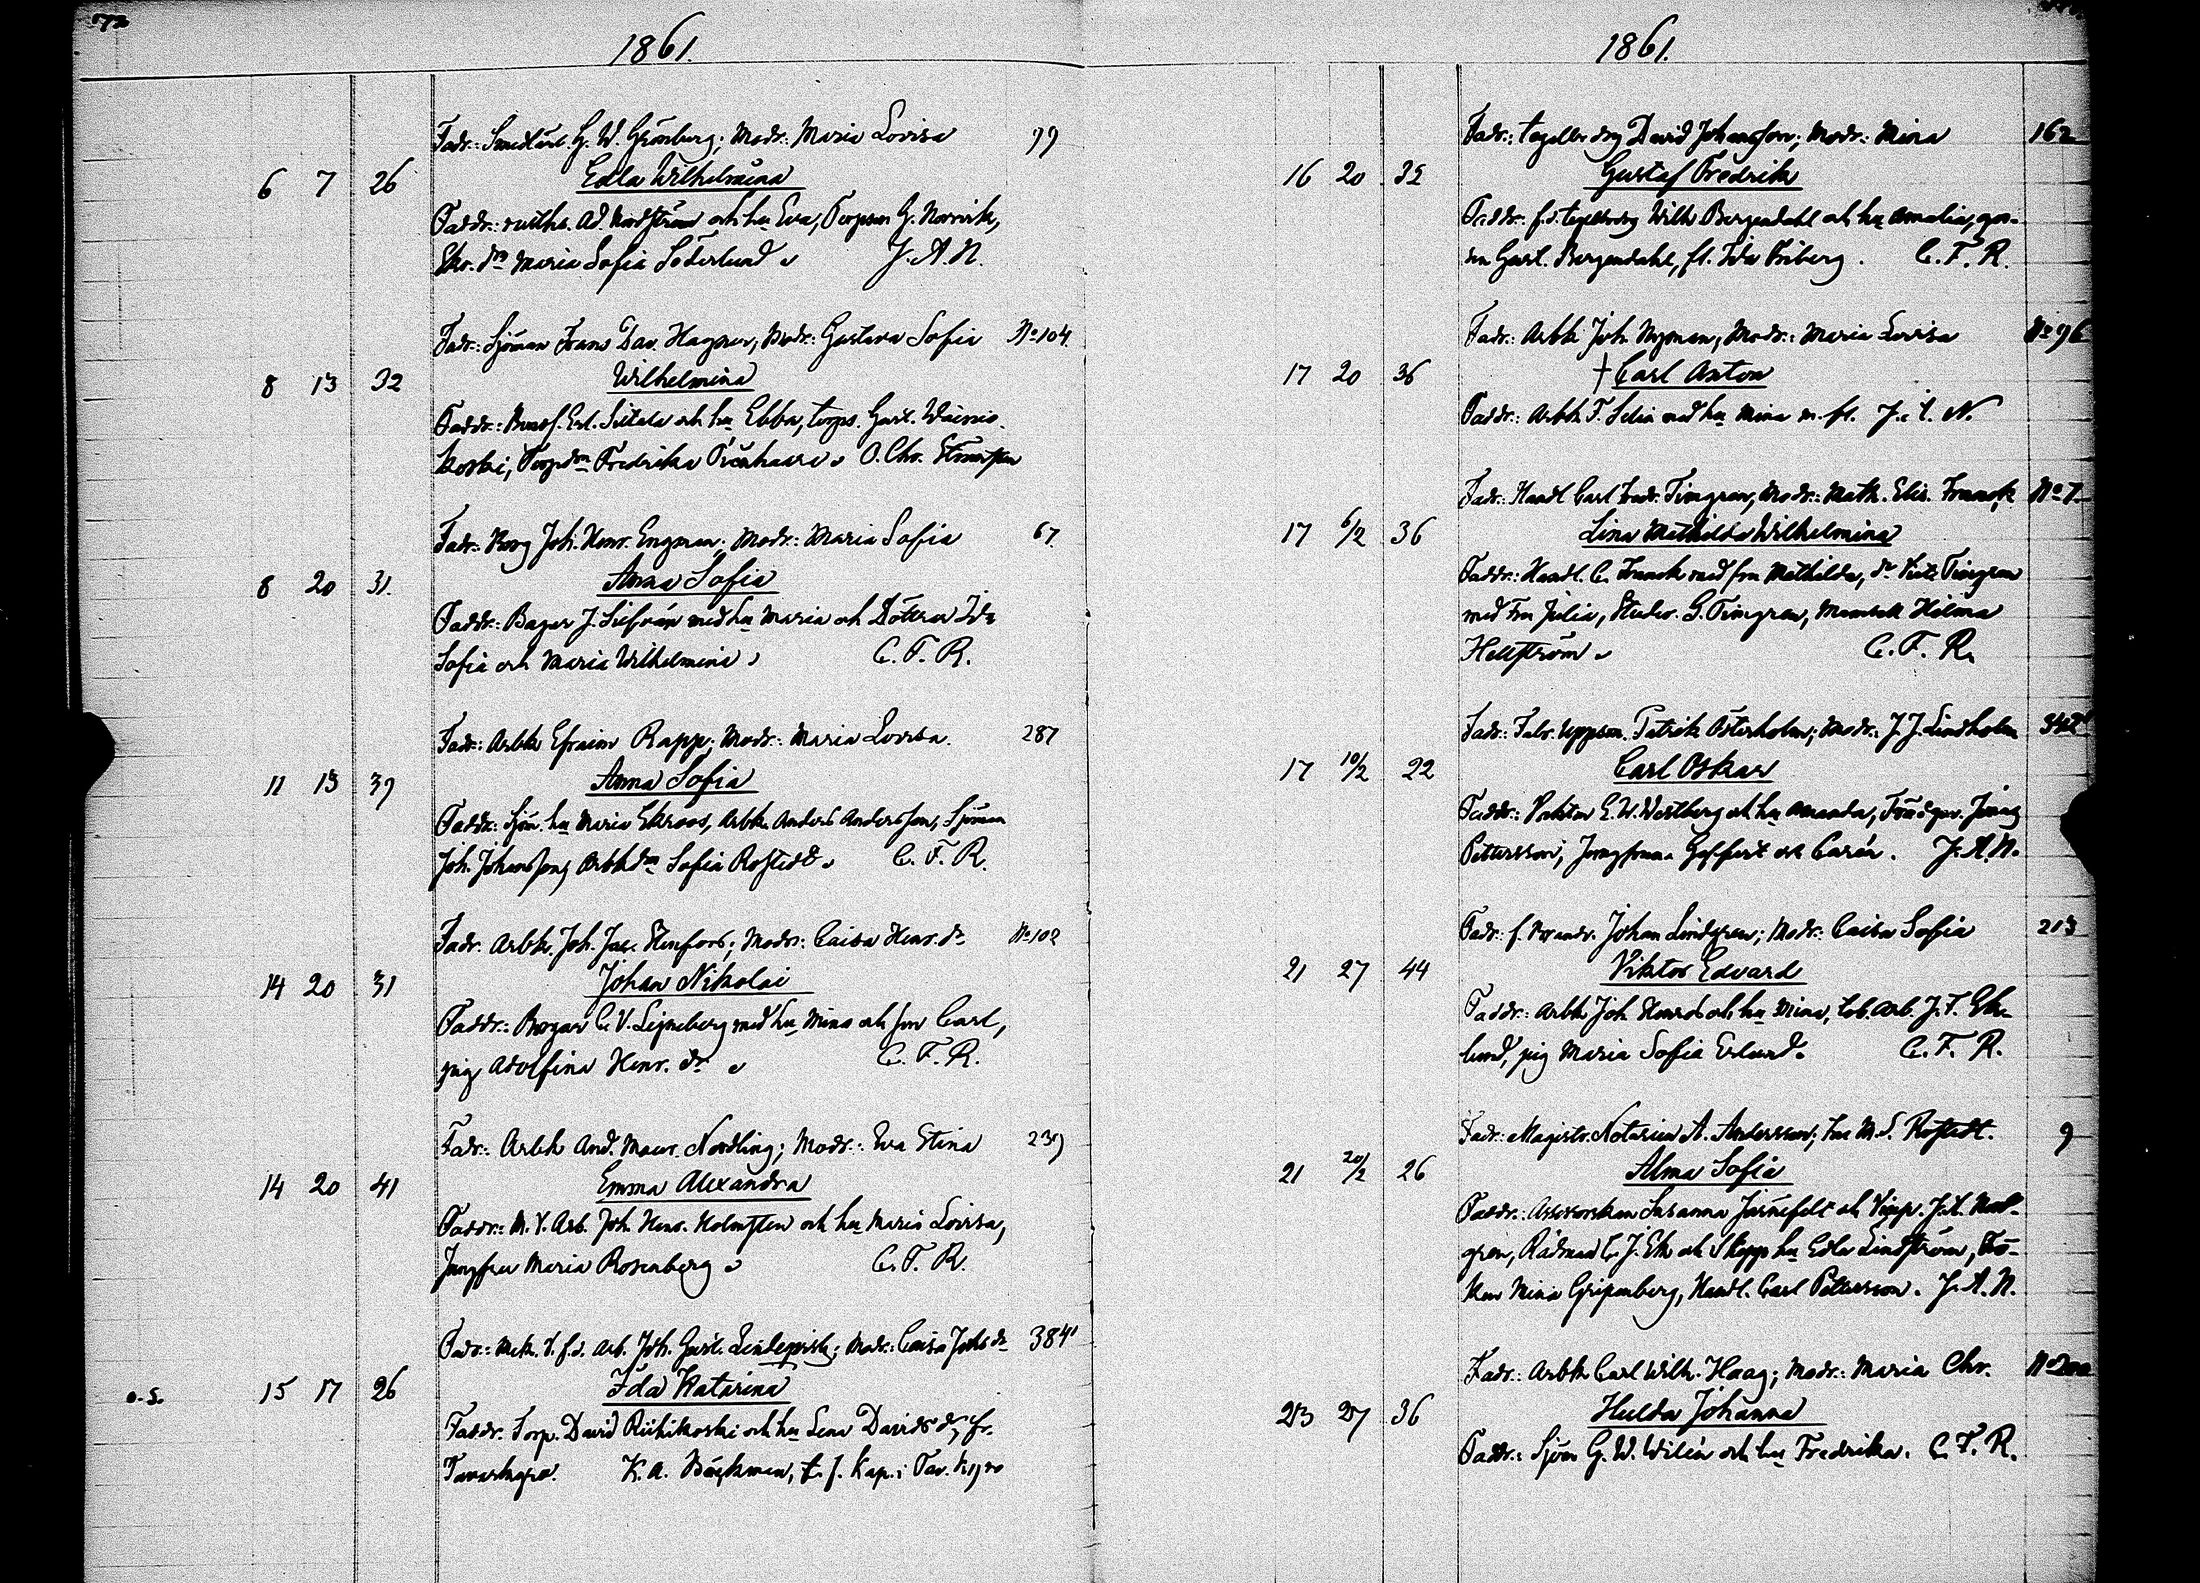 72
1861.
Fadr: Smedlärl. G. W. Grönberg; Modr: Maria Lovisa 77
6 7 26 Edla Wilhelmina
Faddr: Ad. Nordström och hu Eva, Torpson G. Norrvik,
Skr. drn Maria Sofia Söderlund J. A. N.
Fadr: Sjöman Frans Dav. Hagner, Modr: Gustava Sofia No 104.
8 13 32 Wilhelmina
Faddr: Erl. Siltala och hu Ebba, torps. Gust. Wäinio-
koski, Torpdrn Fredrika O. Chr.
Fadr: Joh. Henr. Engman; Modr: Maria Sofia 67.
8 20 31. Anna Sofia
Faddr: Bagar J. med hu Maria och Döttrar Ida
Sofia och Maria Wilhelmina C. F. R.
Fadr: Arbk Efraim Rapp; Modr: Maria Lovisa. 287
11 13 39 Anna Sofia
Faddr: Sjöm. hu Maria Ekroos, Arbk. Anders Andersson, Sjöman
Joh. Johansson, Arbkdrn Sofia Rostedt C. F. R.
Fadr: Arbk. Joh. Jac. Stenfors; Modr: Caisa Henr. dr No 102
14 20 31 Johan Nikolai
Faddr: Bagar C. V. Signeberg med hu Mina och son Carl,
pig Adolfina Henr. dr C. F. R.
Fadr: Arbk And. Maur. Nordling; Modr: Eva Stina 239
14 20 41 Emma Alexandra
Faddr: M. V. Arb. Joh. Henr. Holmsten och hu Maria Lovisa,
Jungfru Maria Rosenberg C. F. R.
Fadr: Mek. V. f.d. Arb. Joh. Gust. Lindeqvist; Modr: Caisa Johs dr 384
o. S. 15 17 26 Ida Katarina
Faddr: Torp. David Riihikoski och hu Lena Davids dr, fr.
Tavastkyro. K. A. Bäckman, t. f. Kap. i Tav. Kyro
1861.
Fadr: David Johansson; Modr: Mina 162
16 20 35 Gustaf Fredrik
Faddr: f.d. Wilh Bergendahl och hu Amalia, gos-
sen Gust. Bergendahl, fl. Ida Friberg. C. F. R.
Fadr: Arbk Joh. Nyman; Modr: Maria Lovisa No 76
17 20 36 † Carl Anton
Faddr: Arbk F. Selin med hu Mina m. fl. J. A. N.
Fadr: Handl Carl Fredr. Timgren, Modr: Math. Elis. Franck No 7.
17 6/2 36 Lina Mathilda Wilhelmina
Faddr: Handl. C. Franck med fru Mathilda, Timgren
med Fru Julia, Studer. G. Timgren, Mamsell Hilma
Hellström C. F. R.
Fadr: Fabr. Uppsm. Patrik Österholm; Modr: J. J. Lindholm 342
17 10/2 22 Carl Oskar
Faddr: Faktor E. W. Westberg och hu Amanda,
Pettersson, Jungfruna och Carén. J. A. N.
Fadr: f. Johan Lindgren; Modr: Caisa Sofia 213
21 27 44 Viktor Edvard
Faddr: Arbk Joh och hu Mina, tob. arb. J. F. Ek-
lund, pig Maria Sofia Erlund. C. F. R.
Fadr: Magistr. Notarien A. Andersson; hu M. S. Rostedt. 9
21 20/2 26 Alma Sofia
Faddr: Assessorskan Susanna Järnefelt och J. A. Nord-
gren, Rådman C. J. Ek och Skepps hu Edla Lindström, Frö-
ken Mina Gripenberg, Handl. Carl Pettersson. J. A. N.
Fadr: Arbk Carl Wilh. Haag; Modr: Maria Chr.
23 27 36 Hulda Johanna
Faddr: Sjöm G. W. Wilén och hu Fredrika. C. F. R.